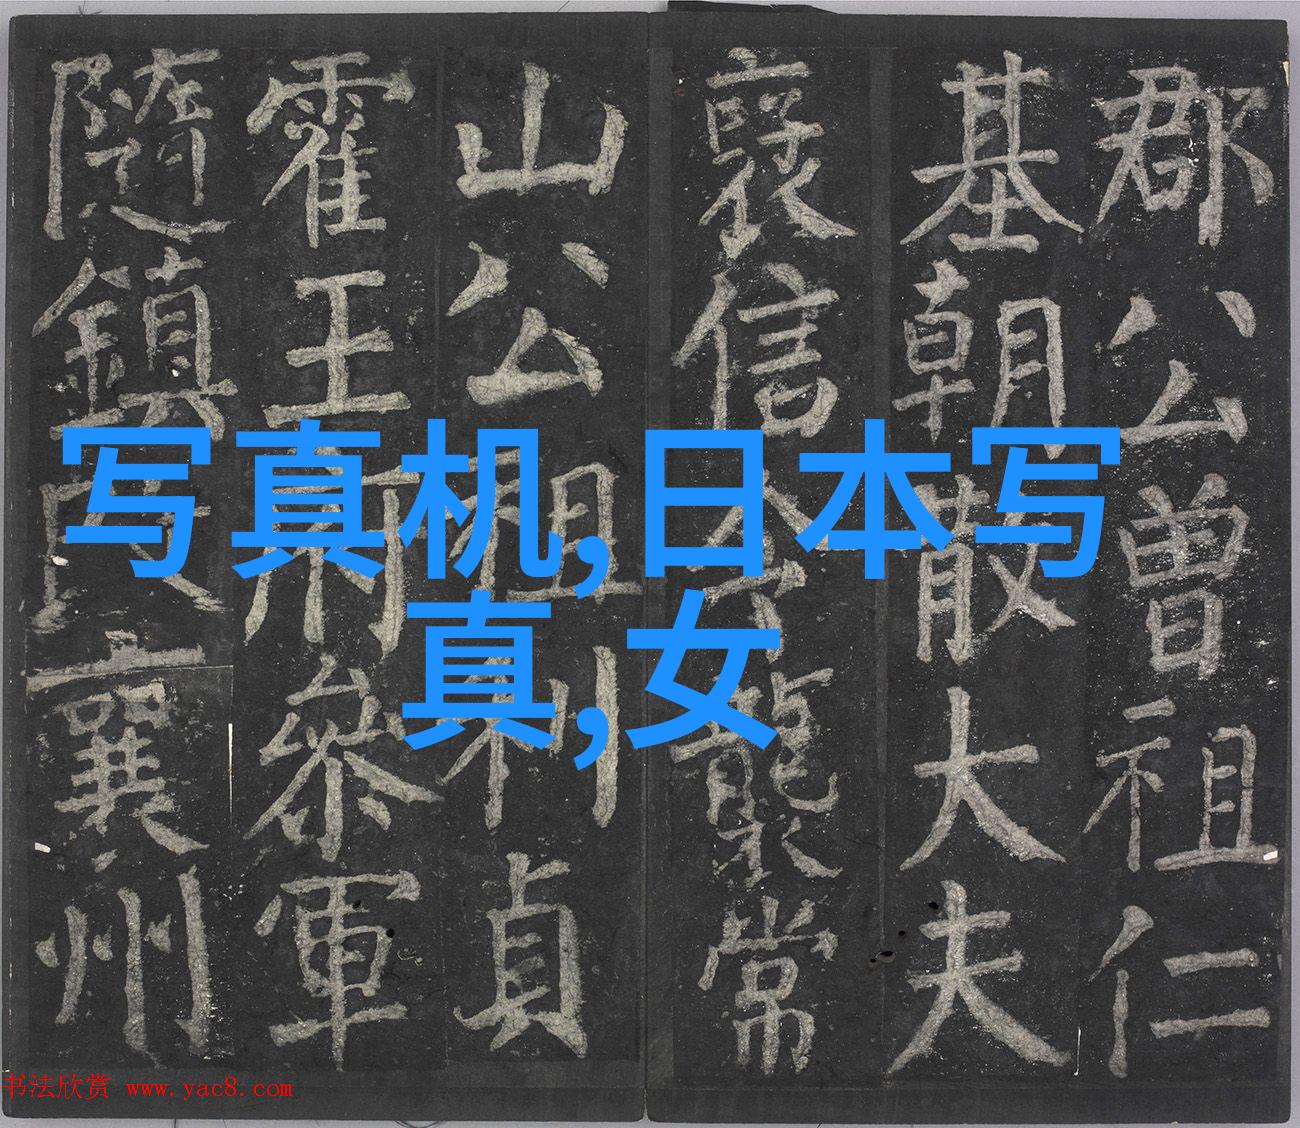 郡公曾祖仁
基朝散大夫
襃信令襲常
山公祖利貞
霍王府參軍
隨鎮襄州
写真机,日本写
真,女
书法欣赏 www.yac8.com